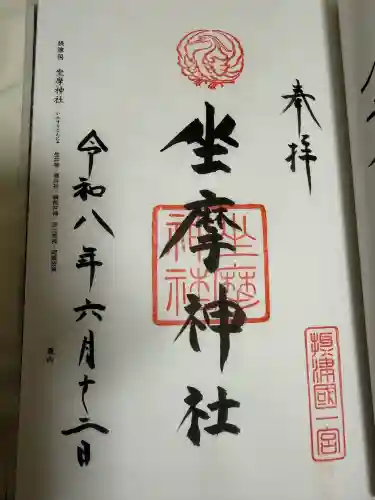 奉拝
坐摩神社
坐摩神社
摂津國一宮
令和八年六月十二日
摂津国 坐摩神社